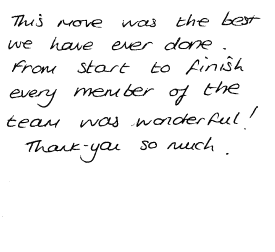 This move was the best
we have ever done.
From start to finish
every member of the
team was wonderful!
Thank-you so much.